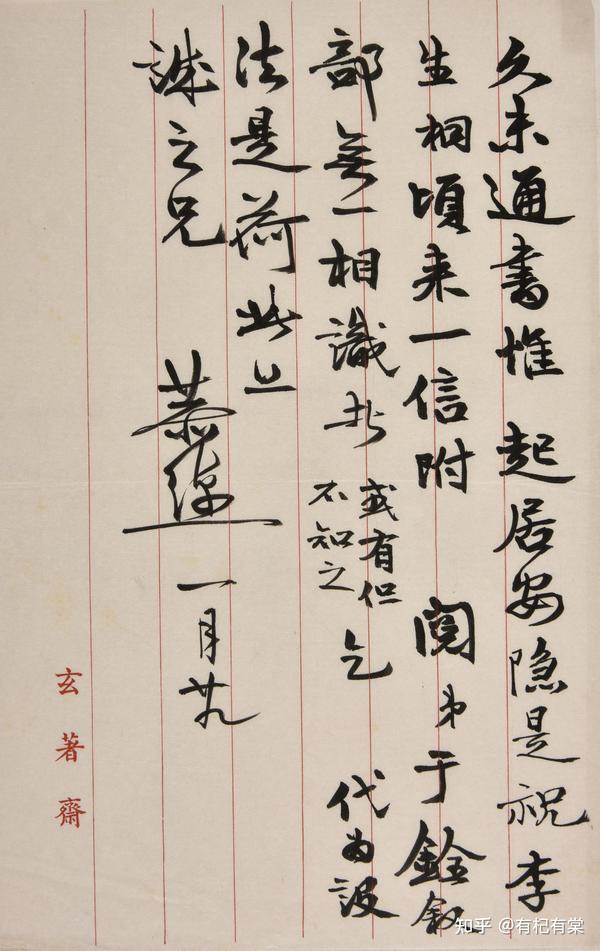 久未通書惟 起居安隐是祝 李
生桐頃来一信附 閱弟于銓叙
部無一相識者 或有但
不知之 乞 代为設
法是荷此上
誠之兄 恭綽 一月廿九
玄著齋
知乎 @有杞有棠